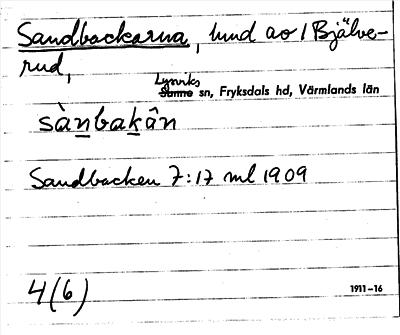 Sandbackarna, lund ao 1 Bjälve-
rud,
Lysviks
Sunne sn, Fryksdals hd, Värmlands län
sànbakân
Sandbacken 7:17 ml 1909
4(6)
1911-16